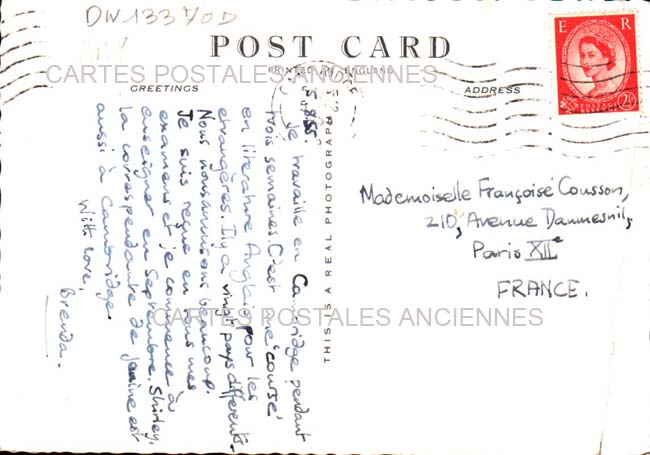 DW13370D
POST CARD
PRINTED IN ENGLAND
CARTES POSTALES ANCIENNES
GREETINGS
ADDRESS
E R
2½D
THIS IS A REAL PHOTOGRAPH
5.8.55.
Je travaille en Cambridge pendant
trois semaines. C'est une 'course'
en literature Anglaise pour les
etrangères. Il y a vingt pays différents.
Nous nous amusons beaucoup.
Je suis reçue en tous mes
examens et je commence à
enseigner en Septembre. Shirley,
la correspondante de Janine est
aussi à Cambridge.
With love,
Brenda.
Mademoiselle Françoise Cousson,
210, Avenue Daumesnil,
Paris XIIe
FRANCE.
CARTES POSTALES ANCIENNES